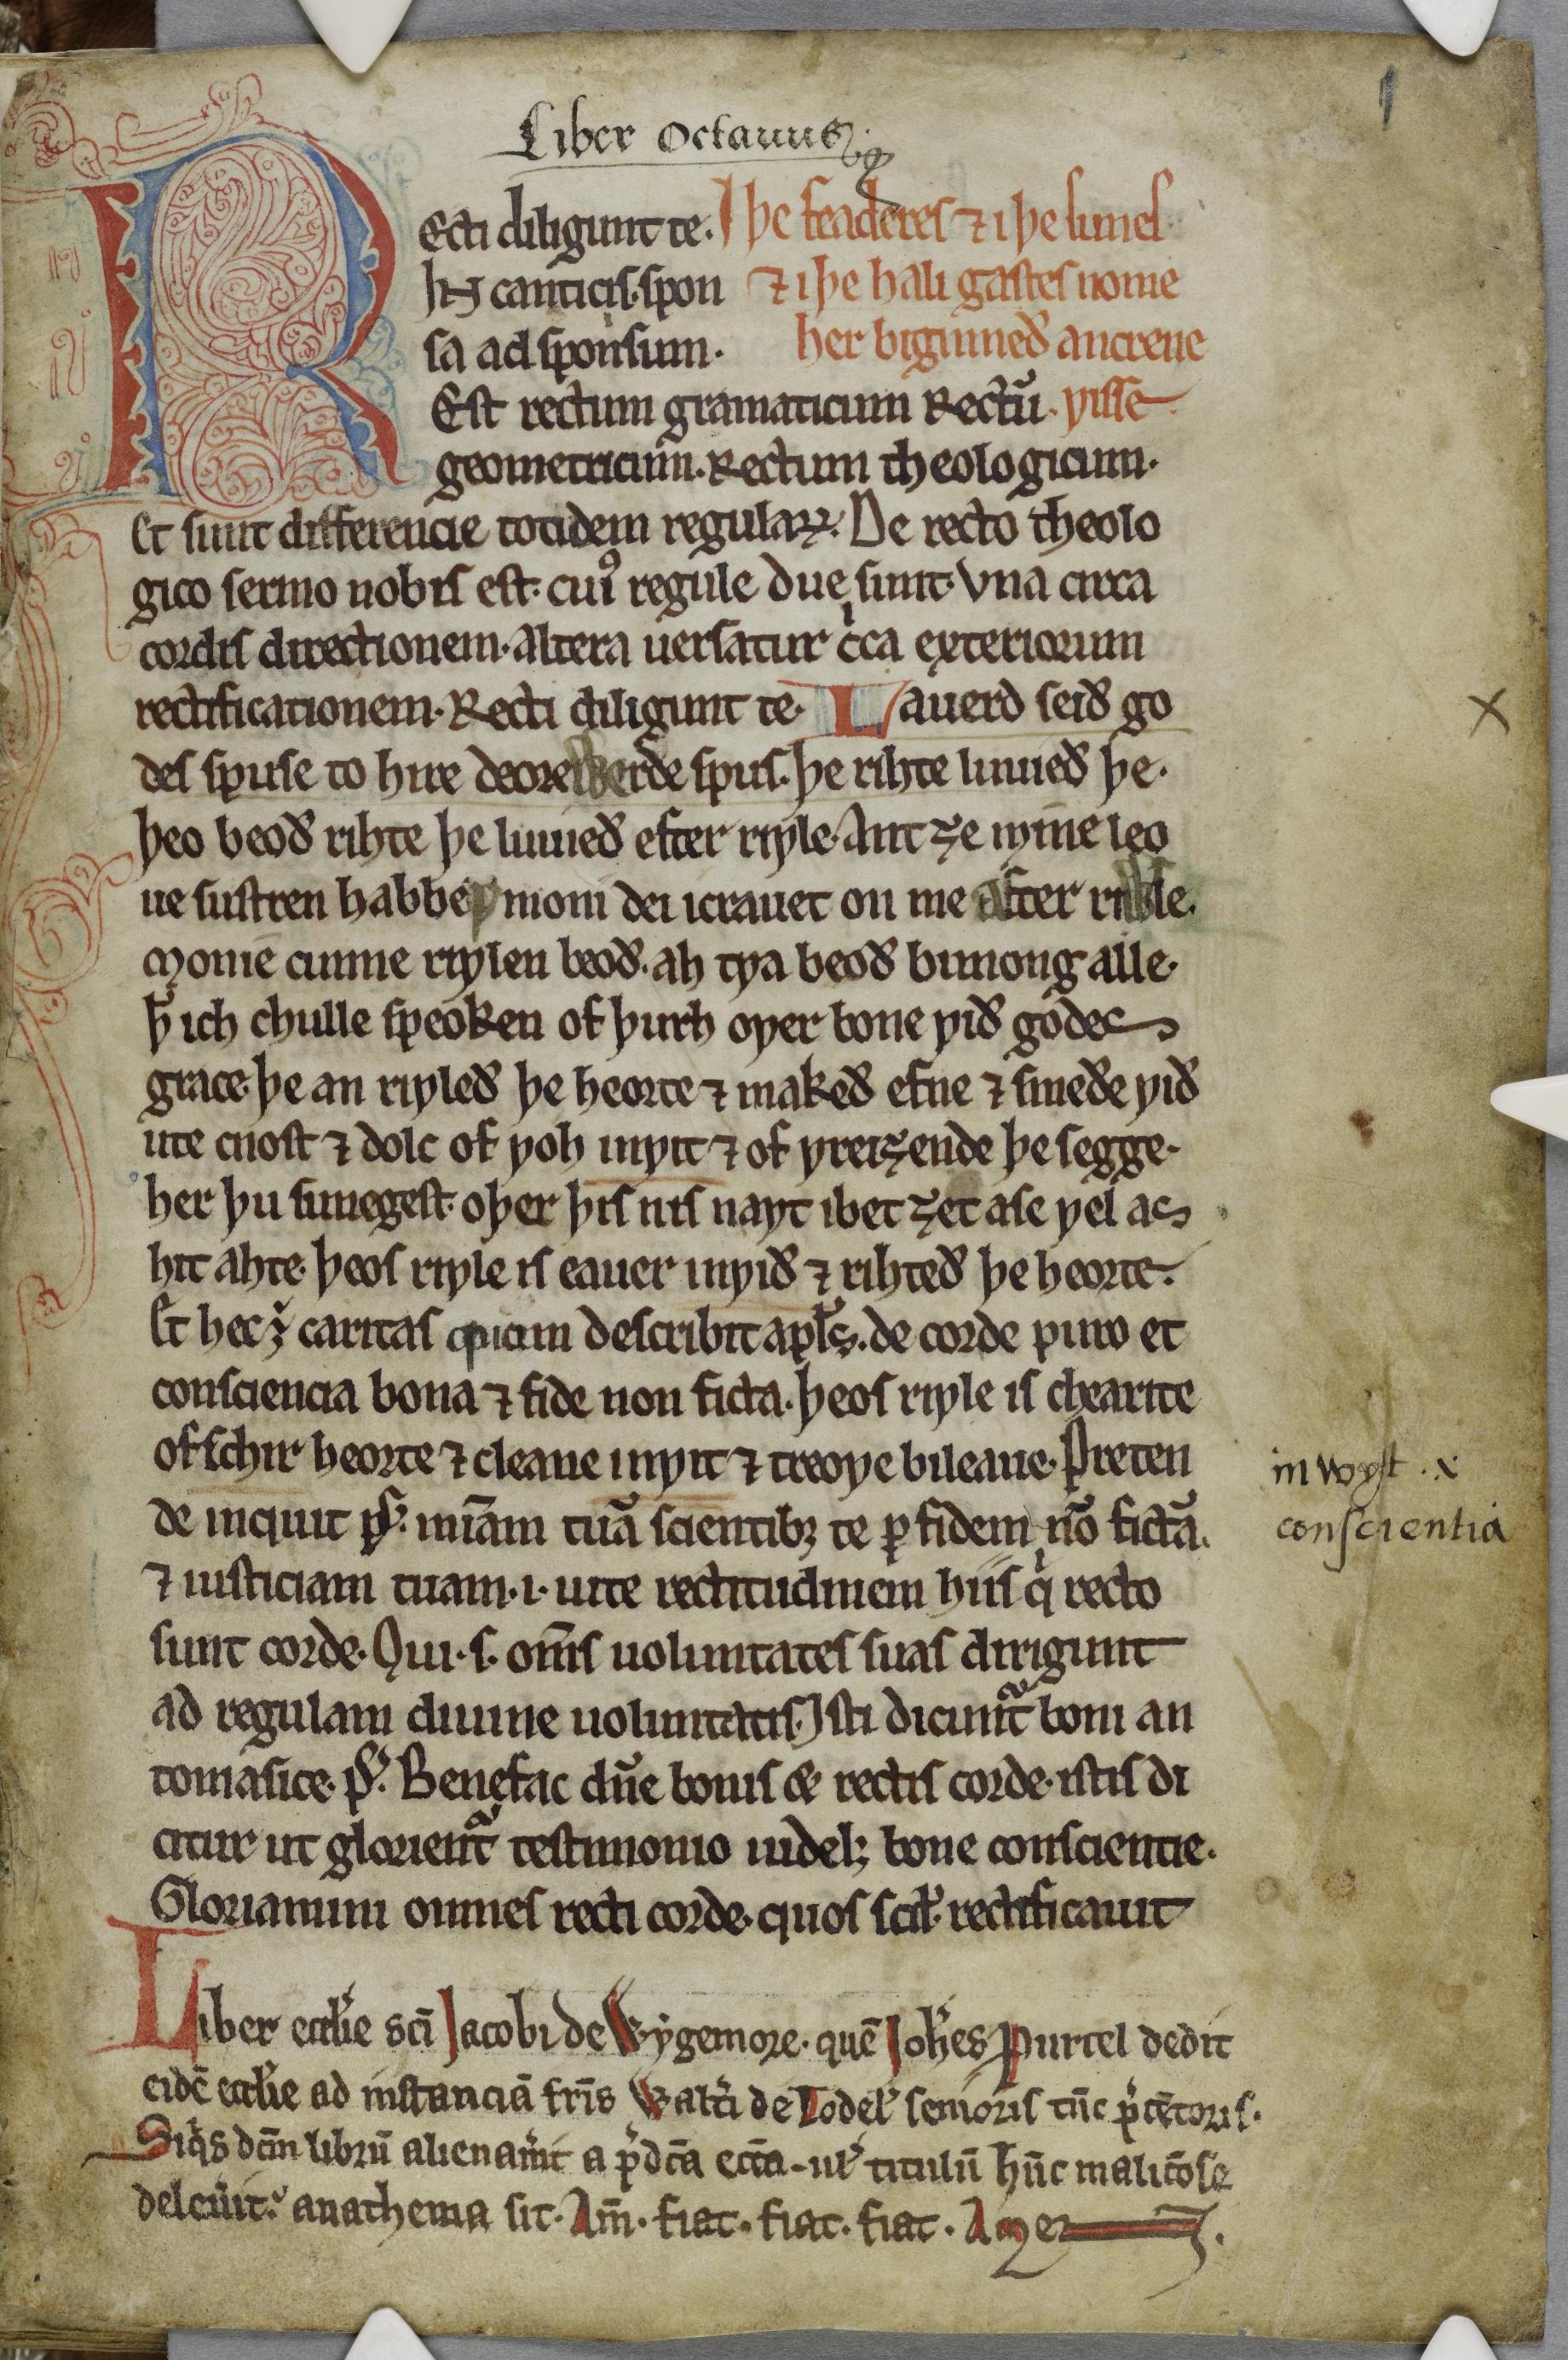 Liber Octauus
I þe feaderes ⁊ i þe sunes
⁊ i þe hali gastes nome
her biginneð ancrene
ƿisse
Recti diligunt te.
In canticis. spon
sa ad sponsum.
Est rectum gramaticum Rectū.
geometricum. Rectum theologicum.
Et sunt differencie totidem regulaꝝ. De recto theolo
gico sermo nobis est. cuiꝰ regule due sunt. Vna circa
cordis directionem. altera uersatur cͥca exteriorum
rectificationem. Recti diligunt te. Lauerd seið go
des spuse to hire deoreƿurðe spus. þe rihte luuieð þe.
þeo beoð rihte þe luuieð efter riƿle. Ant ȝe mine leo
ue sustren habbeð moni dei icrauet on me after riƿle.
Monie cunne riƿlen beoð. ah tƿa beoð bimong alle.
þ̄ ich chulle speoken of þurh oƿer bone ƿið godes
grace. þe an riƿleð þe heorte ⁊ makeð efne ⁊ smeðe ƿið
ute cnost ⁊ dolc of ƿoh inƿit ⁊ of ƿreiȝende þe segge.
her þu sunegest. oþer þis nis naƿt ibet ȝet ase ƿel as
hit ahte. þeos riƿle is eauer inƿið ⁊ rihteð þe heorte.
Et hec ē caritas quam describit apl̄s. de corde puro et
consciencia bona ⁊ fide non ficta. þeos riƿle is chearite
of schir heorte ⁊ cleane inƿit ⁊ treoƿe bileaue. Preten
de inquit p̄s. mīam tuā scientibꝫ te ꝑ fidem nō fictā.
⁊ iusticiam tuam .i. uite rectitudinem hiis qͥ recto
sunt corde. Qui .s. om̄s uoluntates suas dirigunt
ad regulam diuine uoluntatis. Isti dicunt᷑ boni an
tomasice. p̄s. Benefac dn̄e bonis & rectis corde. istis di
citur ut glorient᷑ testimonio uidelꝫ bone conscientie.
Gloriamini omnes recti corde. quos scil̛. rectificauit
in wyt . x
conscientia
Liber eccl̄ie sc̄i Jacobi de Wygemore. quē Joh̄es Purcel dedit
eidē eccl̄ie ad instanciā fr̄is Walt̛i de Lodel̛ senioris tūc p̄cētoris.
Siqͥs dc̄m librū alienaưit a p̄dc̄a eccl̄a. ul̛ titulū hūc malicōse
deleưit. anathema sit. Am̄. fiat. fiat. fiat. Amen.